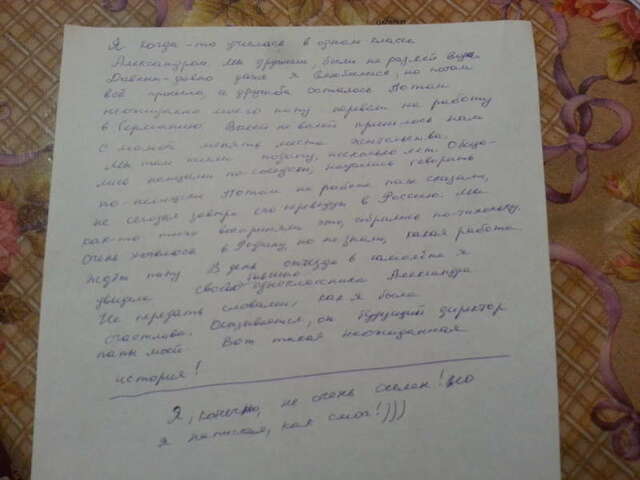 Я когда-то училась в одном классе
Александром. Мы дружили, были не разлей вода.
Давным-давно даже я влюбилась, но потом
всё прошло, а дружба осталась. Потом
неожиданно моего папу перевели на работу
в Германию. Волей не волей пришлось нам
с мамой менять место жительства.
Мы там жили подолгу, несколько лет.
лись немцами по-соседски, научились говорить
по-немецки. Потом на работе папе сказали,
не сегодня завтра его переведут в Россию. Мы
как-то тихо восприняли это, собрались по-тихоньку.
Очень хотелось в Родину, но не знали, какая работа
ждёт папу. В день отъезда в самолёте я
увидела своего бывшего одноклассника Александра.
Не передать словами, как я была
счастлива. Оказывается, он будущий директор
папы моей. Вот такая неожиданная
история!
Я, конечно, не очень силен! но
я написал, как смог!)))